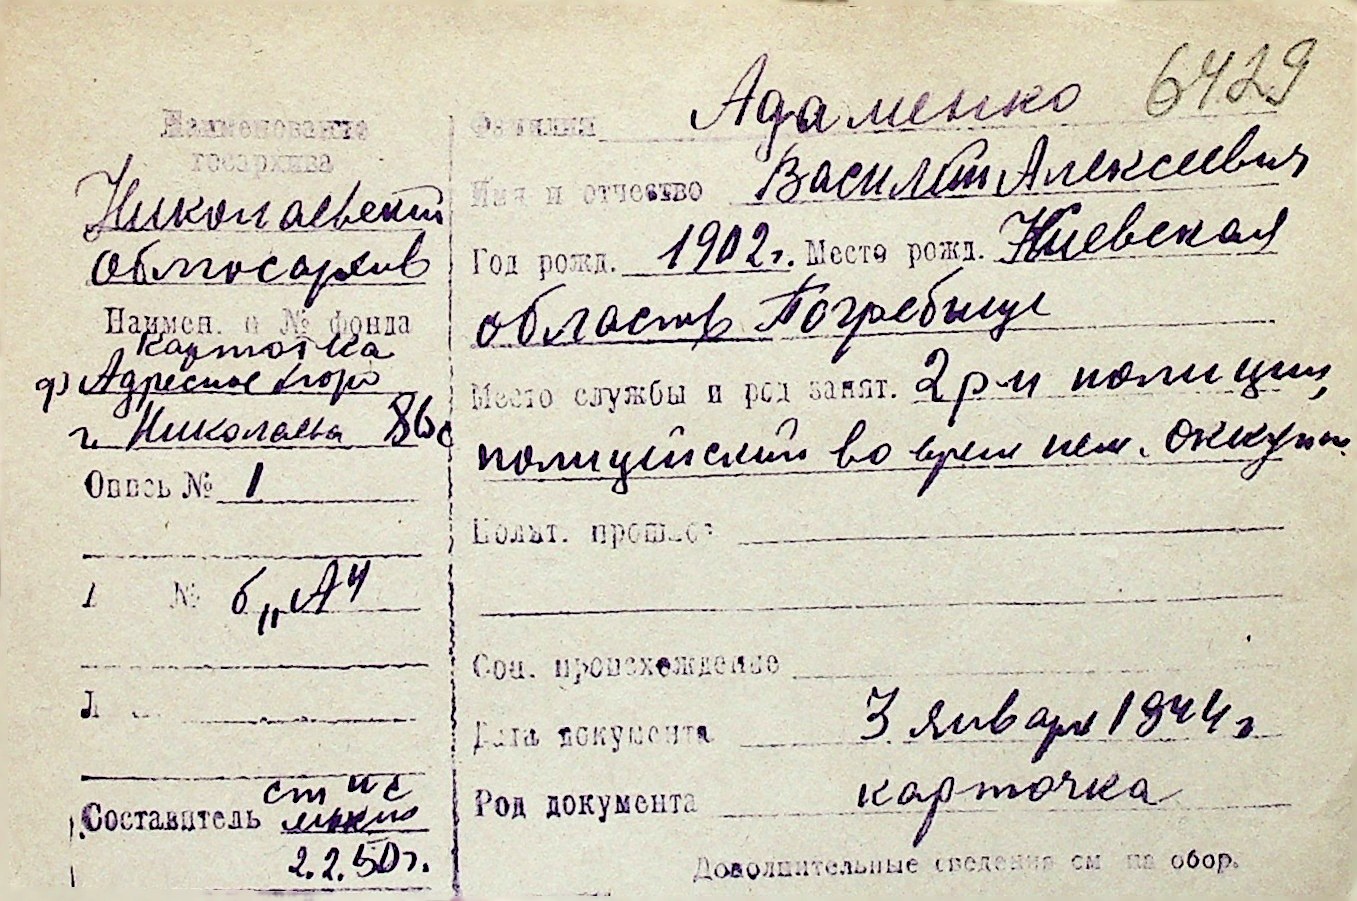 6429
Наименование
госархива
Николаевский
облгосархив
Наимен. и № фонда
картотека
Адресное бюро
г. Николаева 86с
Опись № 1
№ б,,А"
Л
Составитель ст н с
2.2.50г.
Фамилия Адаменко
Имя и отчество Василий Алексеевич
Год рожд. 1902г. Место рожд. Киевская
область Погребище
Место службы и род занят. 2 р-н полиции,
полицейский во врем нем. оккупац.
Полит. прошлое
Соц. происхождение
Дата документа 3 января 1944 г
Род документа карточка
Дополнительные сведения см на обор.